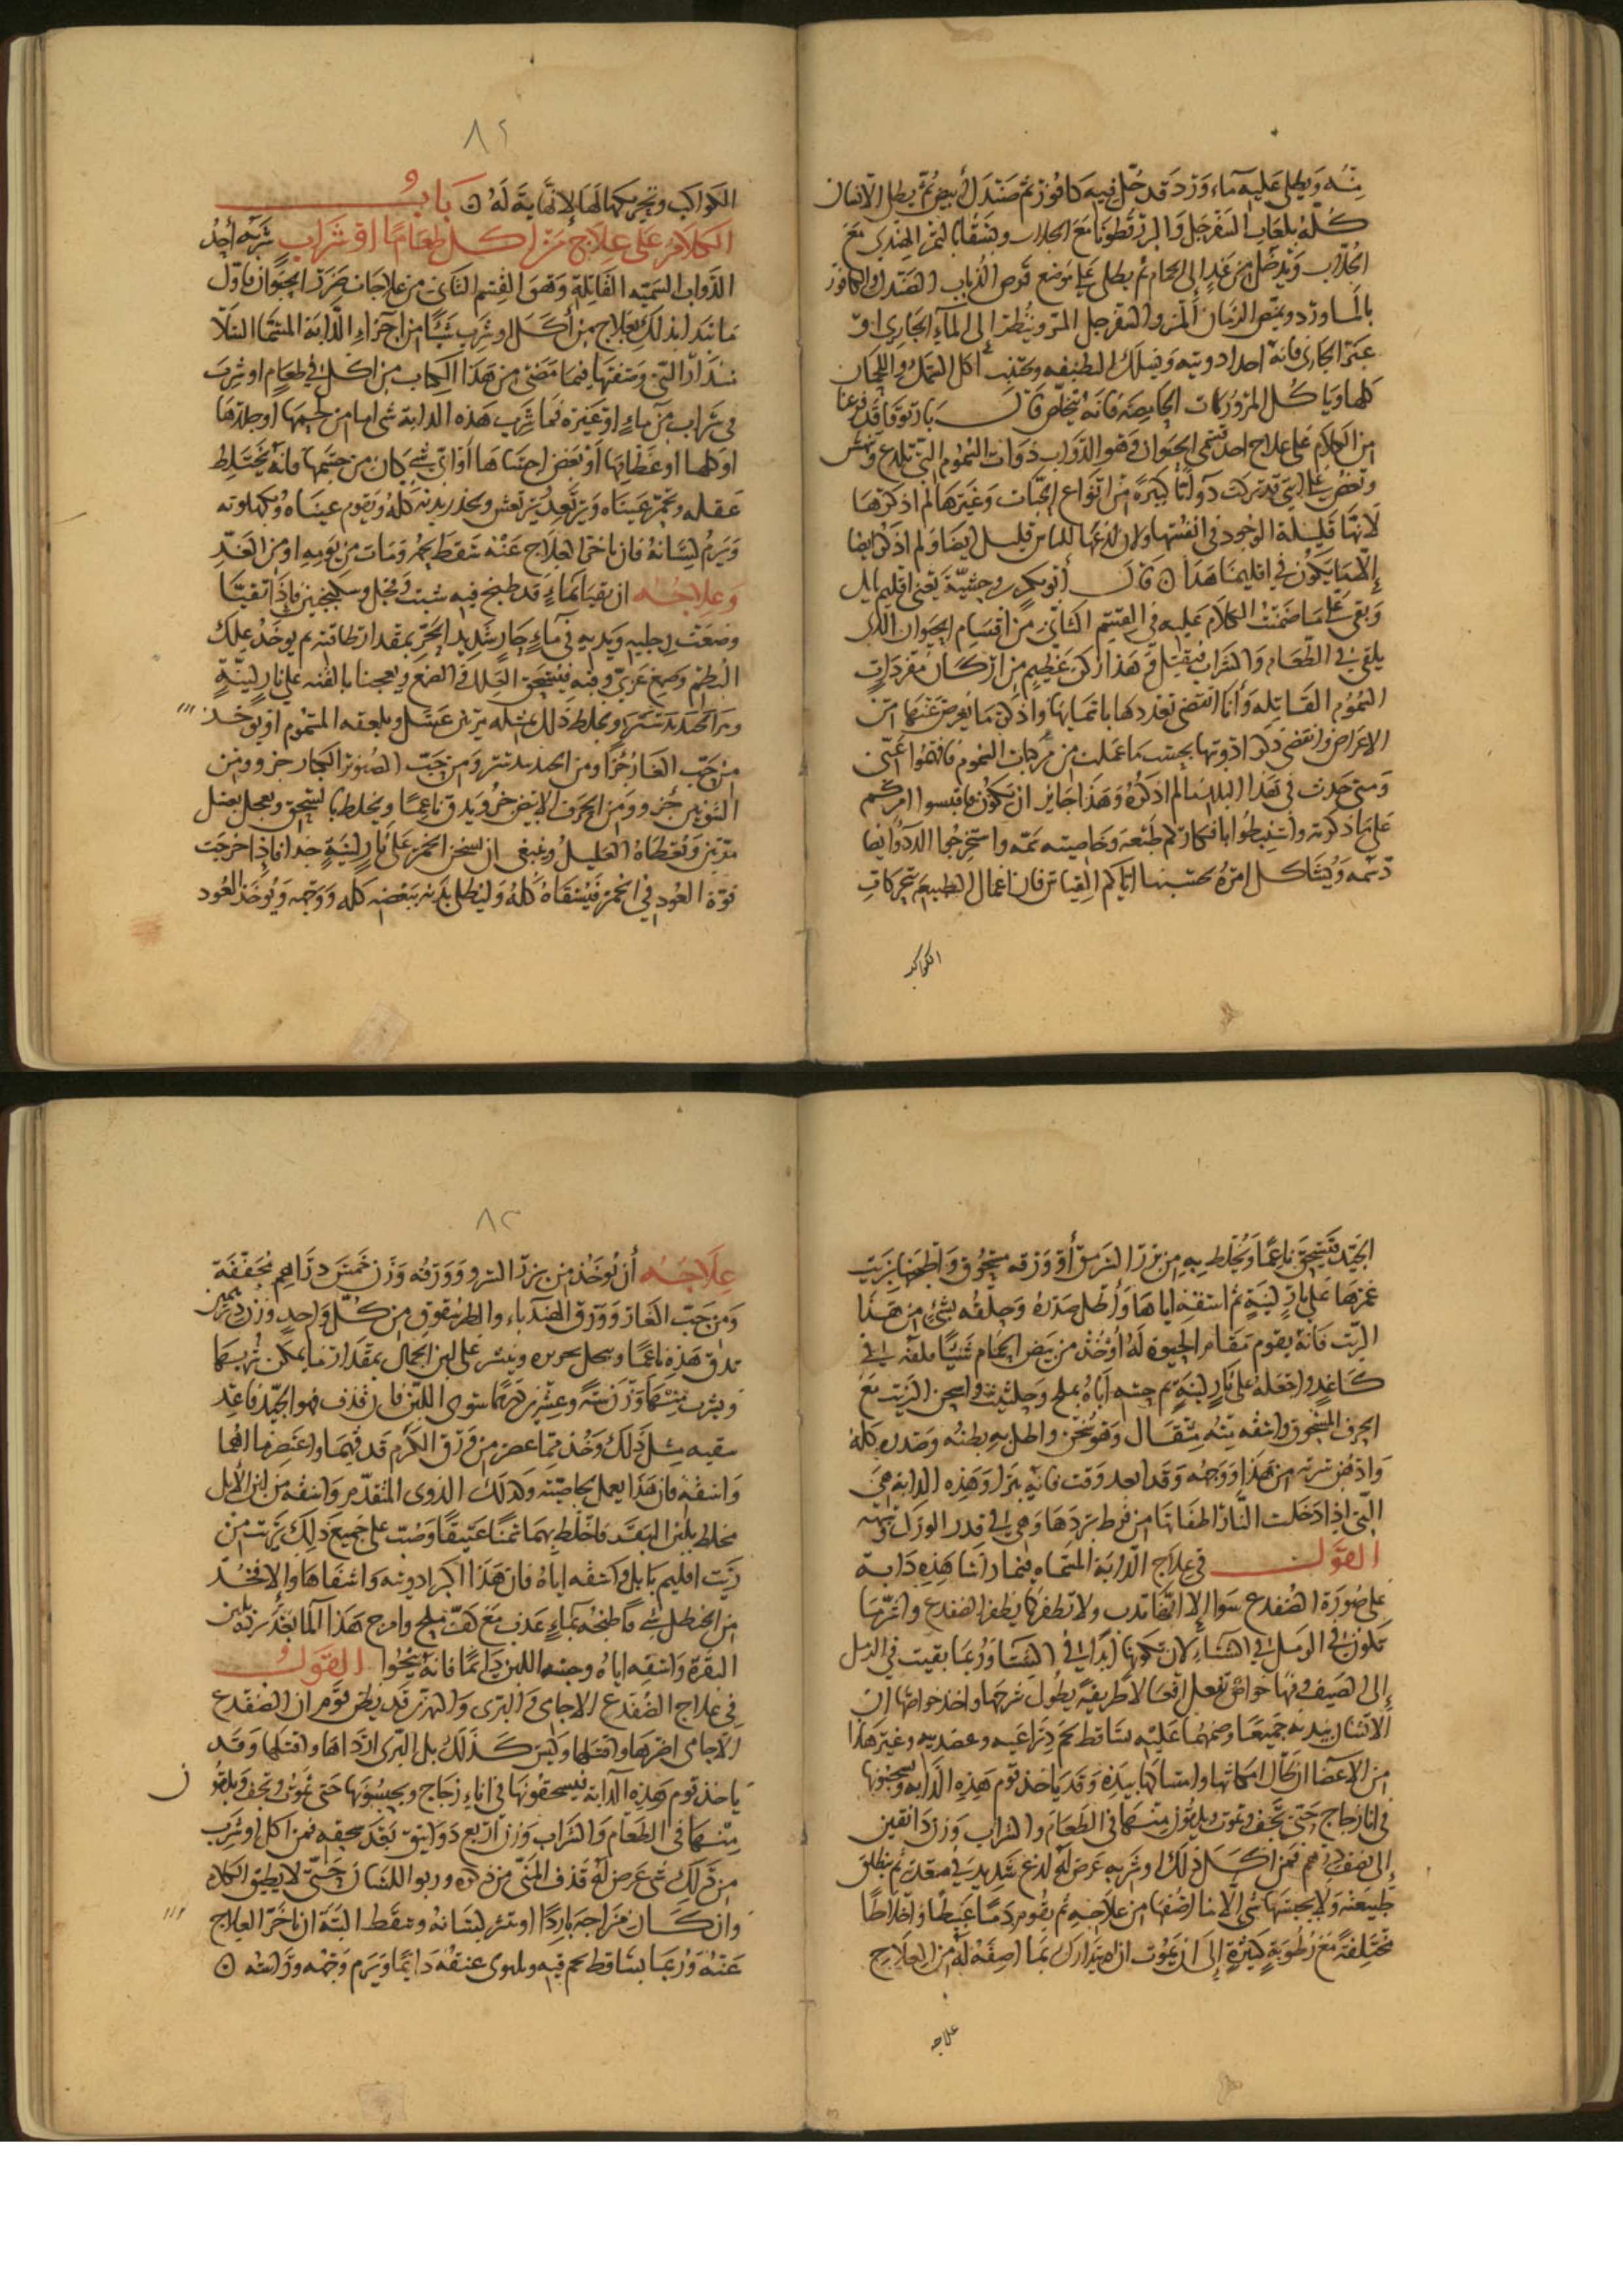 منه ويطلى عليه ماء ورد قد حل فيه كافور ثم صندل أبيض ثم يطلى الانسان
كله بلعاب السفرجل والبزرقطونا مع الجلاب ويسقا التمر الهندي مع
الجلاب ويدخل من غد إلى الحمام ثم يطلى على موضع قرص الذباب الصندل والكافور
بالماورد ويمتص الرمان المز والسفرجل المز وينظر إلى الماء الجاري او
عبرة الجارى فانه احد ادويته ويسلك التطفيه ويجتنب اكل العسل واللحمان
كلها وياكل المزورات الحامضه فانه يتخلص قال ياربوقا قد فرغنا
من الكلام على علاج احد قسمي الحيوان وهو الدواب ذوات السموم التي تلدغ وتنهش
وتعض على اني قد تركت دوابا كثيرة من انواع الحيات وغيرها لم اذكرها
لانها قليلة الوجود في انفسها ولان لدغها للناس قليل ايضا ولم اذكر ايضا
إلا ما يكون في اقليمنا هذا قال أبو بكر بن وحشية يعني اقليم بابل
وبقى على ما ضمنت الكلام عليه في القسم الثاني من اقسام الحيوان الذي
يلقى في الطعام والشراب فيقتل وهذا ركن عظيم من اركان مفردات
السموم القاتله وأنا انقضي تعديدها باتمامها واذكر ما يعرض عنها من
الاعراض وانقضي ذكر ادويتها بحسب ما عملت من مركبات السموم فافهموا عني
ومتى حدث في هذا البلد ما لم اذكره وهذا جايز ان يكون فاقيسوا امركم
على ما ذكرته واستنبطوا بافكاركم طبعه وخاصيته سمه واستخرجوا الدواء ايضا
دسمه ويشاكل امره بحسب ما اتاكم القياس فان اعمال الطبيعه بحركات
الكواكب
٨٢
الكواكب وتحريكها لها لا نهاية له باب
الكلام على علاج من اكل طعاما او شراب شربه أحد
الدواب السمية القاتلة وهو القسم الثاني من علاجات ضرر الحيوان فاول
ما نبدا بذلك بعلاج من أكل او شرب شيئا من اجزاء الدابة المسما السلا
سندار التي وصفتها فيما مضى من هذا الكتاب من اكل في طعام او شرب
في شراب من ماء او غيره مما شرب هذه الدابة شي اما من لحمها او جلدها
او كلها او عظامها أو بعض احشاها أو اي شي كان من جسمها فانه يختلط
عقله وتحمر عيناه ويرتعد ويرتعش ويخدر بدنه كله ويقوم عيناه ويكمد لونه
ويرم لسانه فان تاخر العلاج عنه سقط لحمه ومات من يومه او من الغد
وعلاجه ان يقيا بماء قد طبخ فيه شبت وفجل وسكنجبين فاذا تقيا
وضعت رجليه ويديه في ماء حار شديد الحر بمقدار طاقته ثم يوخذ علك
البطم وصمغ عربي وقنه فيسحق العلك والصمغ ويعجنا بالقنه على نار لينة
ومر الجندبيدستر ويخلط ذلك بمثله مرتين عسل ويلعقه المسموم او يوخذ
من حب الغار جزأ ومن الجندبيدستر ومن حب الصنوبر الكبار جزوو ومن
الشونيز جزوو ومن الحرف الابيض جزو ويدق ناعما ويخلط بالسحق ويعجل بعسل
مرتين ويعطاه العليل وينبغي ان يسخن الخمر على نار لينة جدا فاذا خرجت
قوة العود في الخمر فيسقاه كله وليطلى بدنه ببعضه كله ووجهه ويوخذ العود
الجيد فيسحق ناعما ويخلط به من بزر السرمق أو ورقه مسحوق واطبخها بزيت
غمرها على نار لينة ثم اسقه اياها واطل صدره وحلقه بشي من هذا
الزيت فانه يقوم مقام الحيوة له أو خذ من بيض الحمام شيا فلفه في
كاغد واجعله على نار لينة ثم حسه اياه بملح وحلتيت واعجن الزيت مع
الحرف المسحوق واسقه منه مثقال وهو سخن واطل به بطنه وصدره كله
وادهن سرته من هذا ووجهه وقتا بعد وقت فانه يبرا وهذه الدابة هي
التي اذا دخلت النار اطفاتها من فرط بردها وهي في قدر الورل
القول في علاج الدابة المسماه فيمادانا هذه دابة
على صورة الضفدع سوا إلا انها تدب ولا تطفر كما يطفر الضفدع واكثر ما
تكون في الرمل في الشتاء لان تكونها ابدا في الشتا وربما بقيت في الرمل
إلى الصيف ولها خواص تفعل افعالا طريفة يطول شرحها واحد خواصها ان
الانسان بيديه جميعا وضمهما عليه تساقط لحم ذراعيه وعضديه وغير هذا
من الاعضا ان طال امساكها وامساكها بيده وقد ياخذ قوم هذه الدابه ويسجنونها
في انا زجاج حتى تجف وتموت ويلقون منها في الطعام والشراب وزن دانقين
إلى نصف درهم فمن اكل ذلك او شربه عرض له لدغ شديد في معدته ثم ينطلق
طبيعته ولا يحبسها شي الا ما اصفها من علاجه ثم يقوم دما عبيطا واخلاطا
مختلفة مع رطوبة كثيرة إلى ان يموت ان لم يتدارك بما اصفه له من العلاج
علاجه
٨٣
علاجه أن يوخذ من بزر السرو وورقه وزن خمس دراهم مجففة
ومن حب الغار وورق الهندباء والطرشقوق من كل واحد وزن درهمين
تدق هذه ناعما وينخل بحريره وينثر على لبن الجمال بمقدار ما يمكن شربها
ويشرب منها وزن ستة وعشرين درهما سوى اللبن فان قذف فهو الجيد فاعد
سقيه مثل ذلك وخذ مما عصر من ورق الكرم قد فيهما واعصرهما
واسقه فان هذا يعمل بخاصيته وكذلك الدوى المتقدم واسقه من لبن الابل
مخلط بلبن البقر فاخلط بهما سمنا عتيقا وصب على جميع ذلك زيت من
زيت اقليم بابل واسقه اياه فان هذا اكبر ادويته واشفاها والا فخذ
من الحنظل شي فاطبخه بماء عذب مع كف ملح وامزج هذا الما بعد بلبن
البقرة واسقه اياه وحسه اللبن دايما فانه ينجوا القول
في علاج الضفدع الاجامى والبرى والنهرى قد يظن قوم ان الضفدع
الاجامى اضرها واقتلها وليس كذلك بل البرى ارداها واقتلها وقد
ياخذ قوم هذه الدابة فيسحقونها في اناء زجاج ويحبسونها حتى تموت وتجف ويلقون
منها في الطعام والشراب وزن اربع دوانيق بعد سحقه فمن اكل او شرب
من ذلك شي عرض له قذف المني من ذكره وربو اللسان حتى لا يطيق الكلام
وان كان مزاجه باردا استرسل لسانه وسقط البتة ان تاخر العلاج
عنه وربما تساقط لحم فيه ويلتوى عنقه دايما ويرم وجهه وراسه